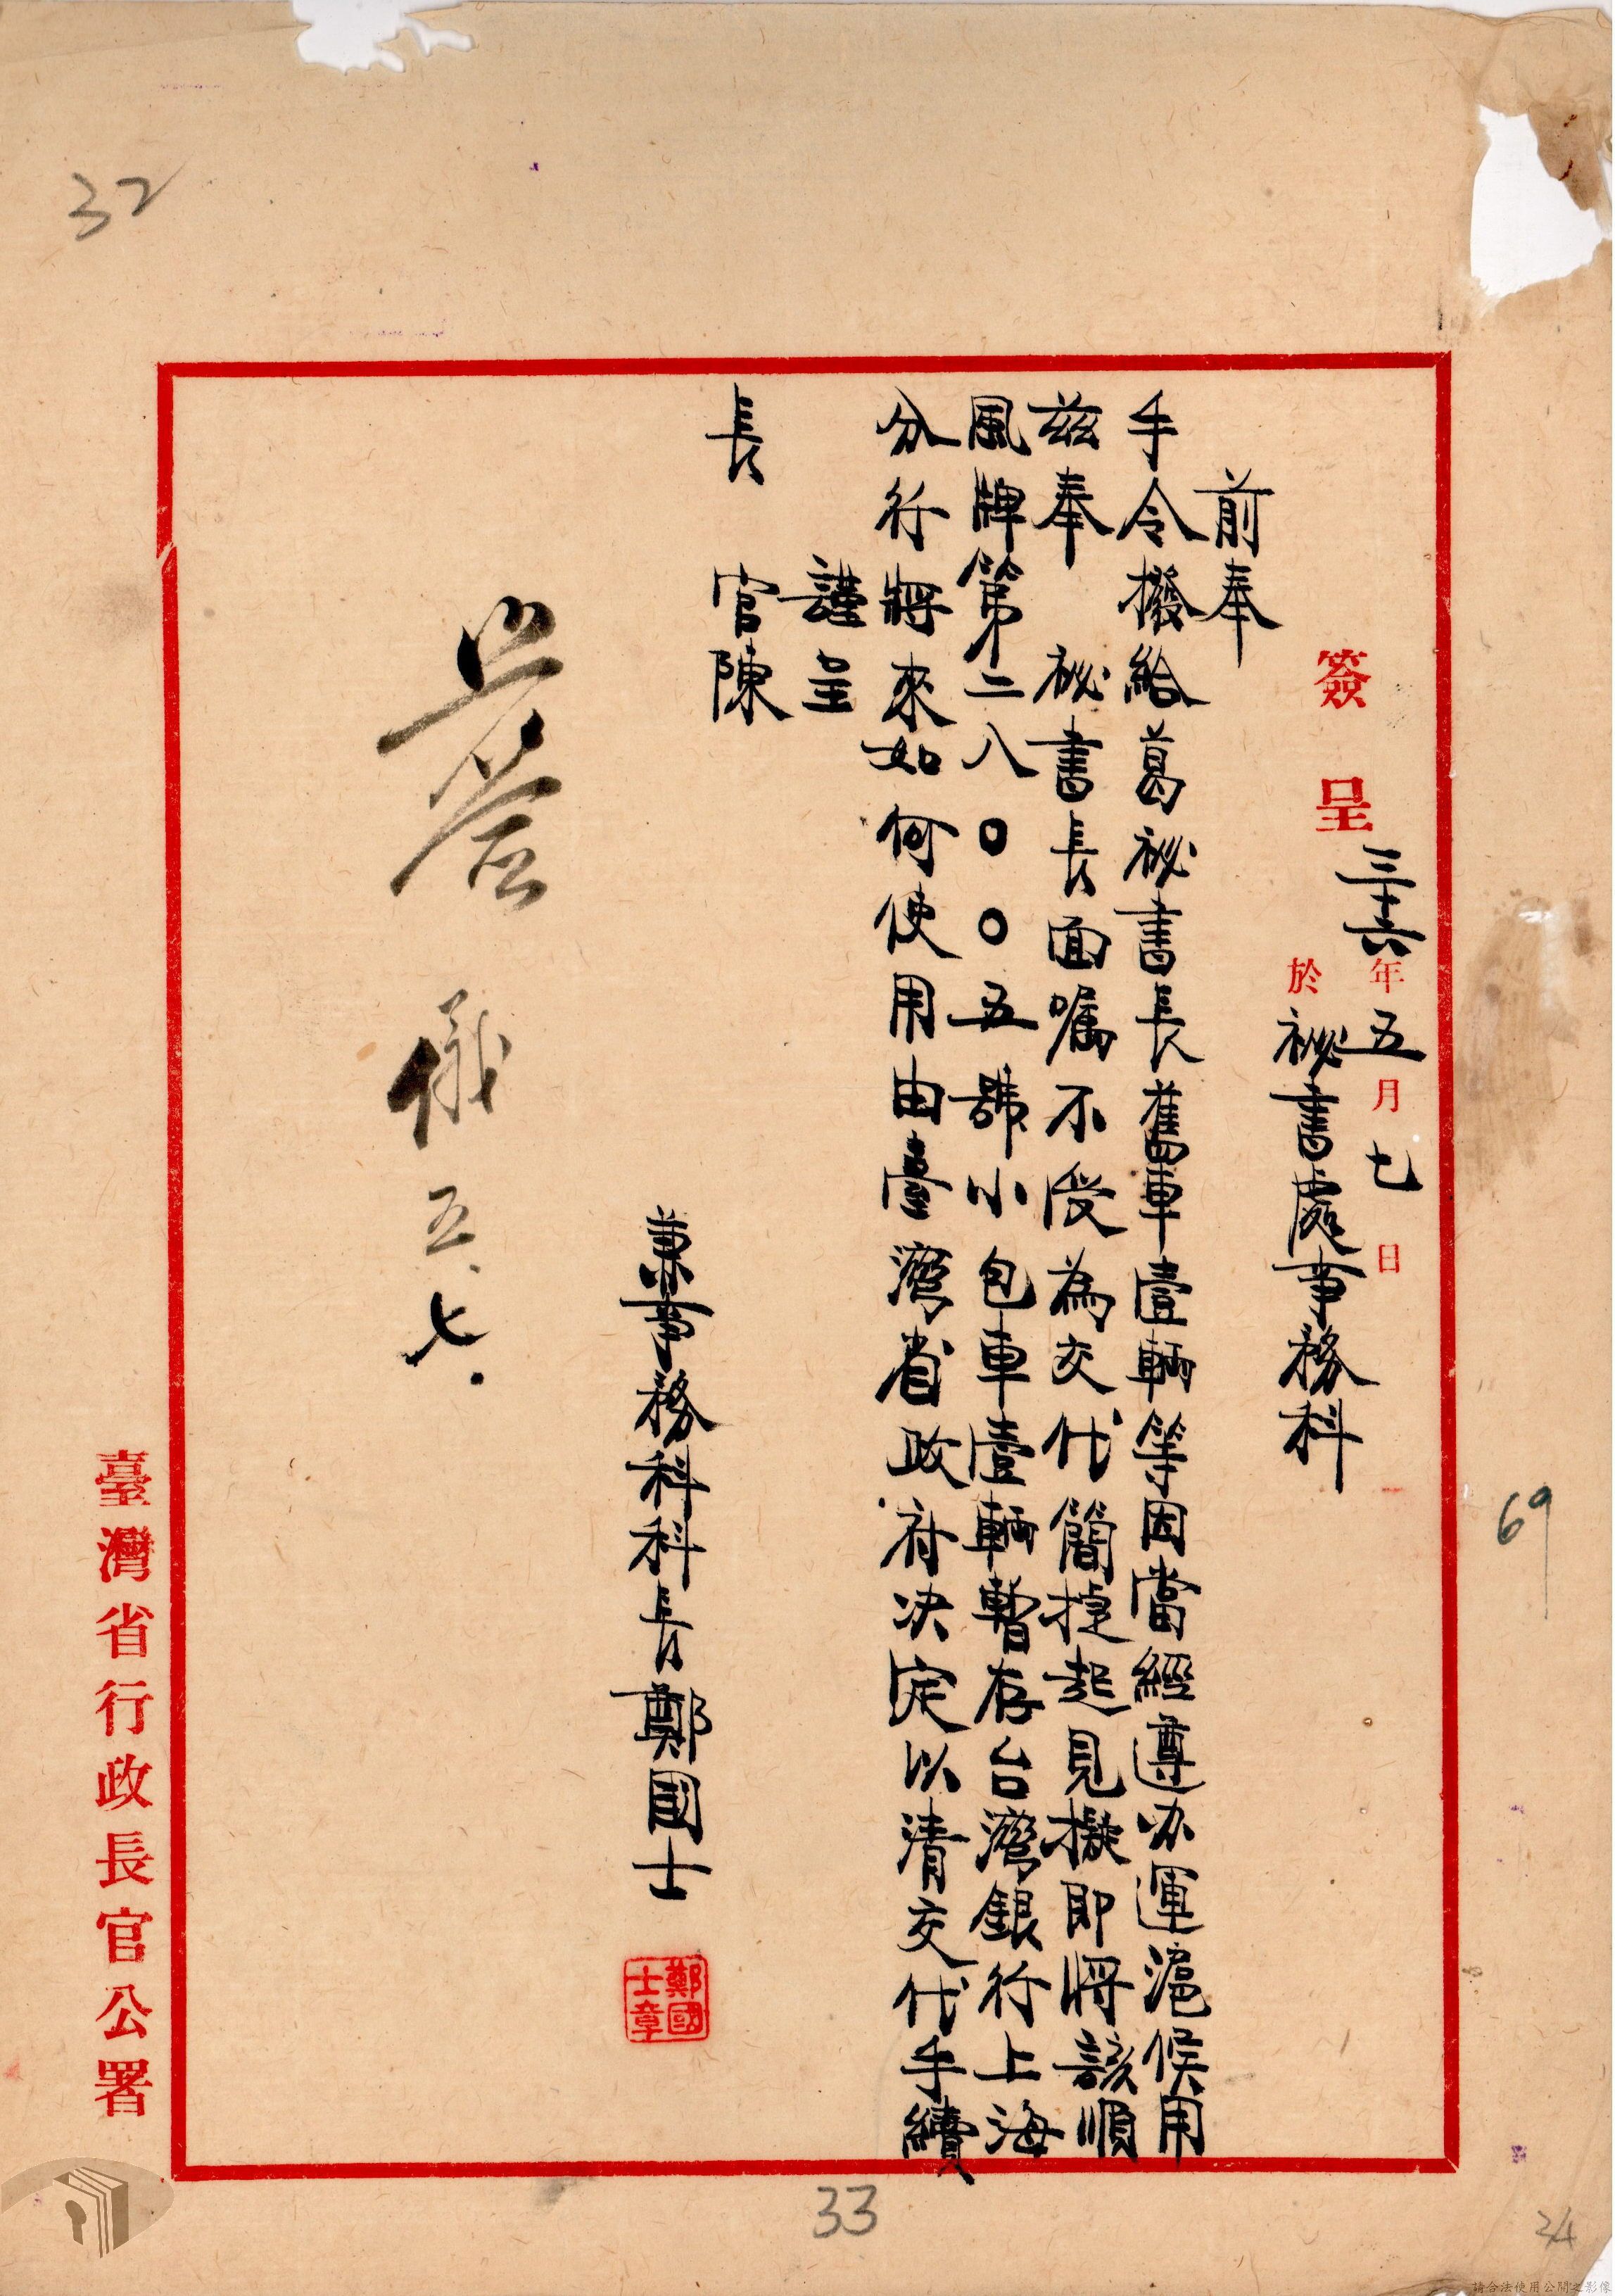 32
簽呈 三十六年五月七日
於祕書處事務科
前奉
手令撥給葛祕書長舊車壹輛等因當經遵办運滬候用
茲奉 祕書長面嘱不受為交代簡捷起見擬即將該順
風牌第二八〇〇五號小包車壹輛暫存台灣銀行上海
分行將來如何使用由臺灣省政府决定以清交代手續
謹呈
長官陳
兼事務科科長鄭國士
鄭國士章
儀 五、七.
臺灣省行政長官公署
69
33
34
請合法使用公開之影像